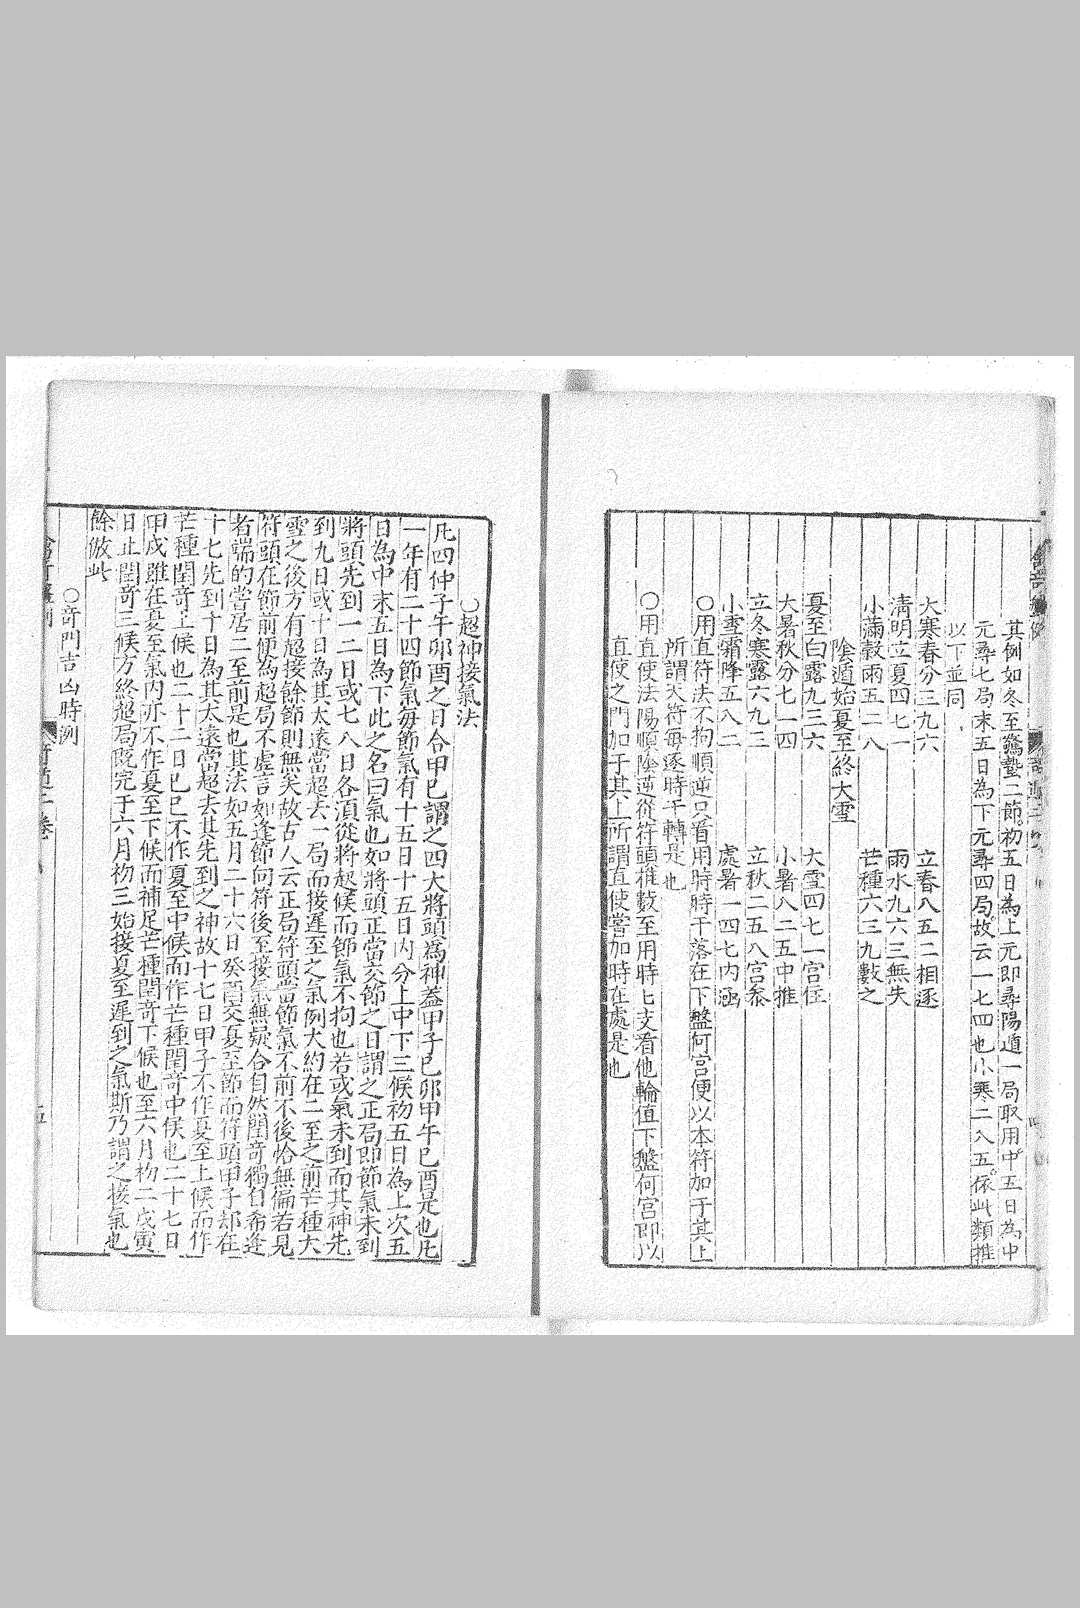 其例如冬至驚蟄二節初五日為上元即尋陽遁一局取用中五日為中
元尋七局末五日為下元尋四局故云一七四也小寒二八五依此類推
以下並同
大寒春分三九六　立春八五二相逐
清明立夏四七一　雨水九六三無失
小滿穀雨五二八　芒種六三九數之
陰遁始夏至終大雪
夏至白露九三六　大雪四七一宮住
大暑秋分七一四　小暑八二五中推
立冬寒露六九三　立秋二五八宮叅
小雪霜降五八二　處暑一四七内涵
○用直符法不拘順逆只看用時時干落在下盤何宮便以本符加于其上
所謂天符每逐時干轉是也
○用直使法陽順陰逆從符頭推數至用時匕支看他輪值下盤何宮即以
直使之門加于其上所謂直使嘗加時在處是也
○超神接氣法
凡四仲子午卯酉之日合甲巳謂之四大將頭為神蓋甲子巳卯甲午巳酉是也凡
一年有二十四節氣每節氣有十五日十五日内分上中下三候初五日為上次五
日為中末五日為下此之名曰氣也如將頭正當交節之日謂之正局即節氣未到
將頭先到一二日或七八日各須從將起候而節氣不拘也若或氣未到而其神先
到九日或十日為其太遠當超去一局而接遲至之氣例大約在二至之前芒種大
雪之後方有超接餘節則無矣故古人云正局符頭當節氣不前不後恰無偏若見
符頭在節前便為超局不虛言如逢節向符後至接氣無疑合自然閏奇獨自希逢
者端的嘗居二至前是也其法如五月二十六日癸酉交夏至節而符頭甲子却在
十七先到十日為其太遠當超去其先到之神故十七日甲子不作夏至上候而作
芒種閏奇上候也二十二日巳巳不作夏至中候而作芒種閏奇中候也二十七日
甲戍雖在夏至氣内亦不作夏至下候而補足芒種閏奇下候也至六月初二戊寅
日止閏奇三候方終超局既完于六月初三始接夏至遲到之氣斯乃謂之接氣也
餘倣此
○奇門吉凶時測